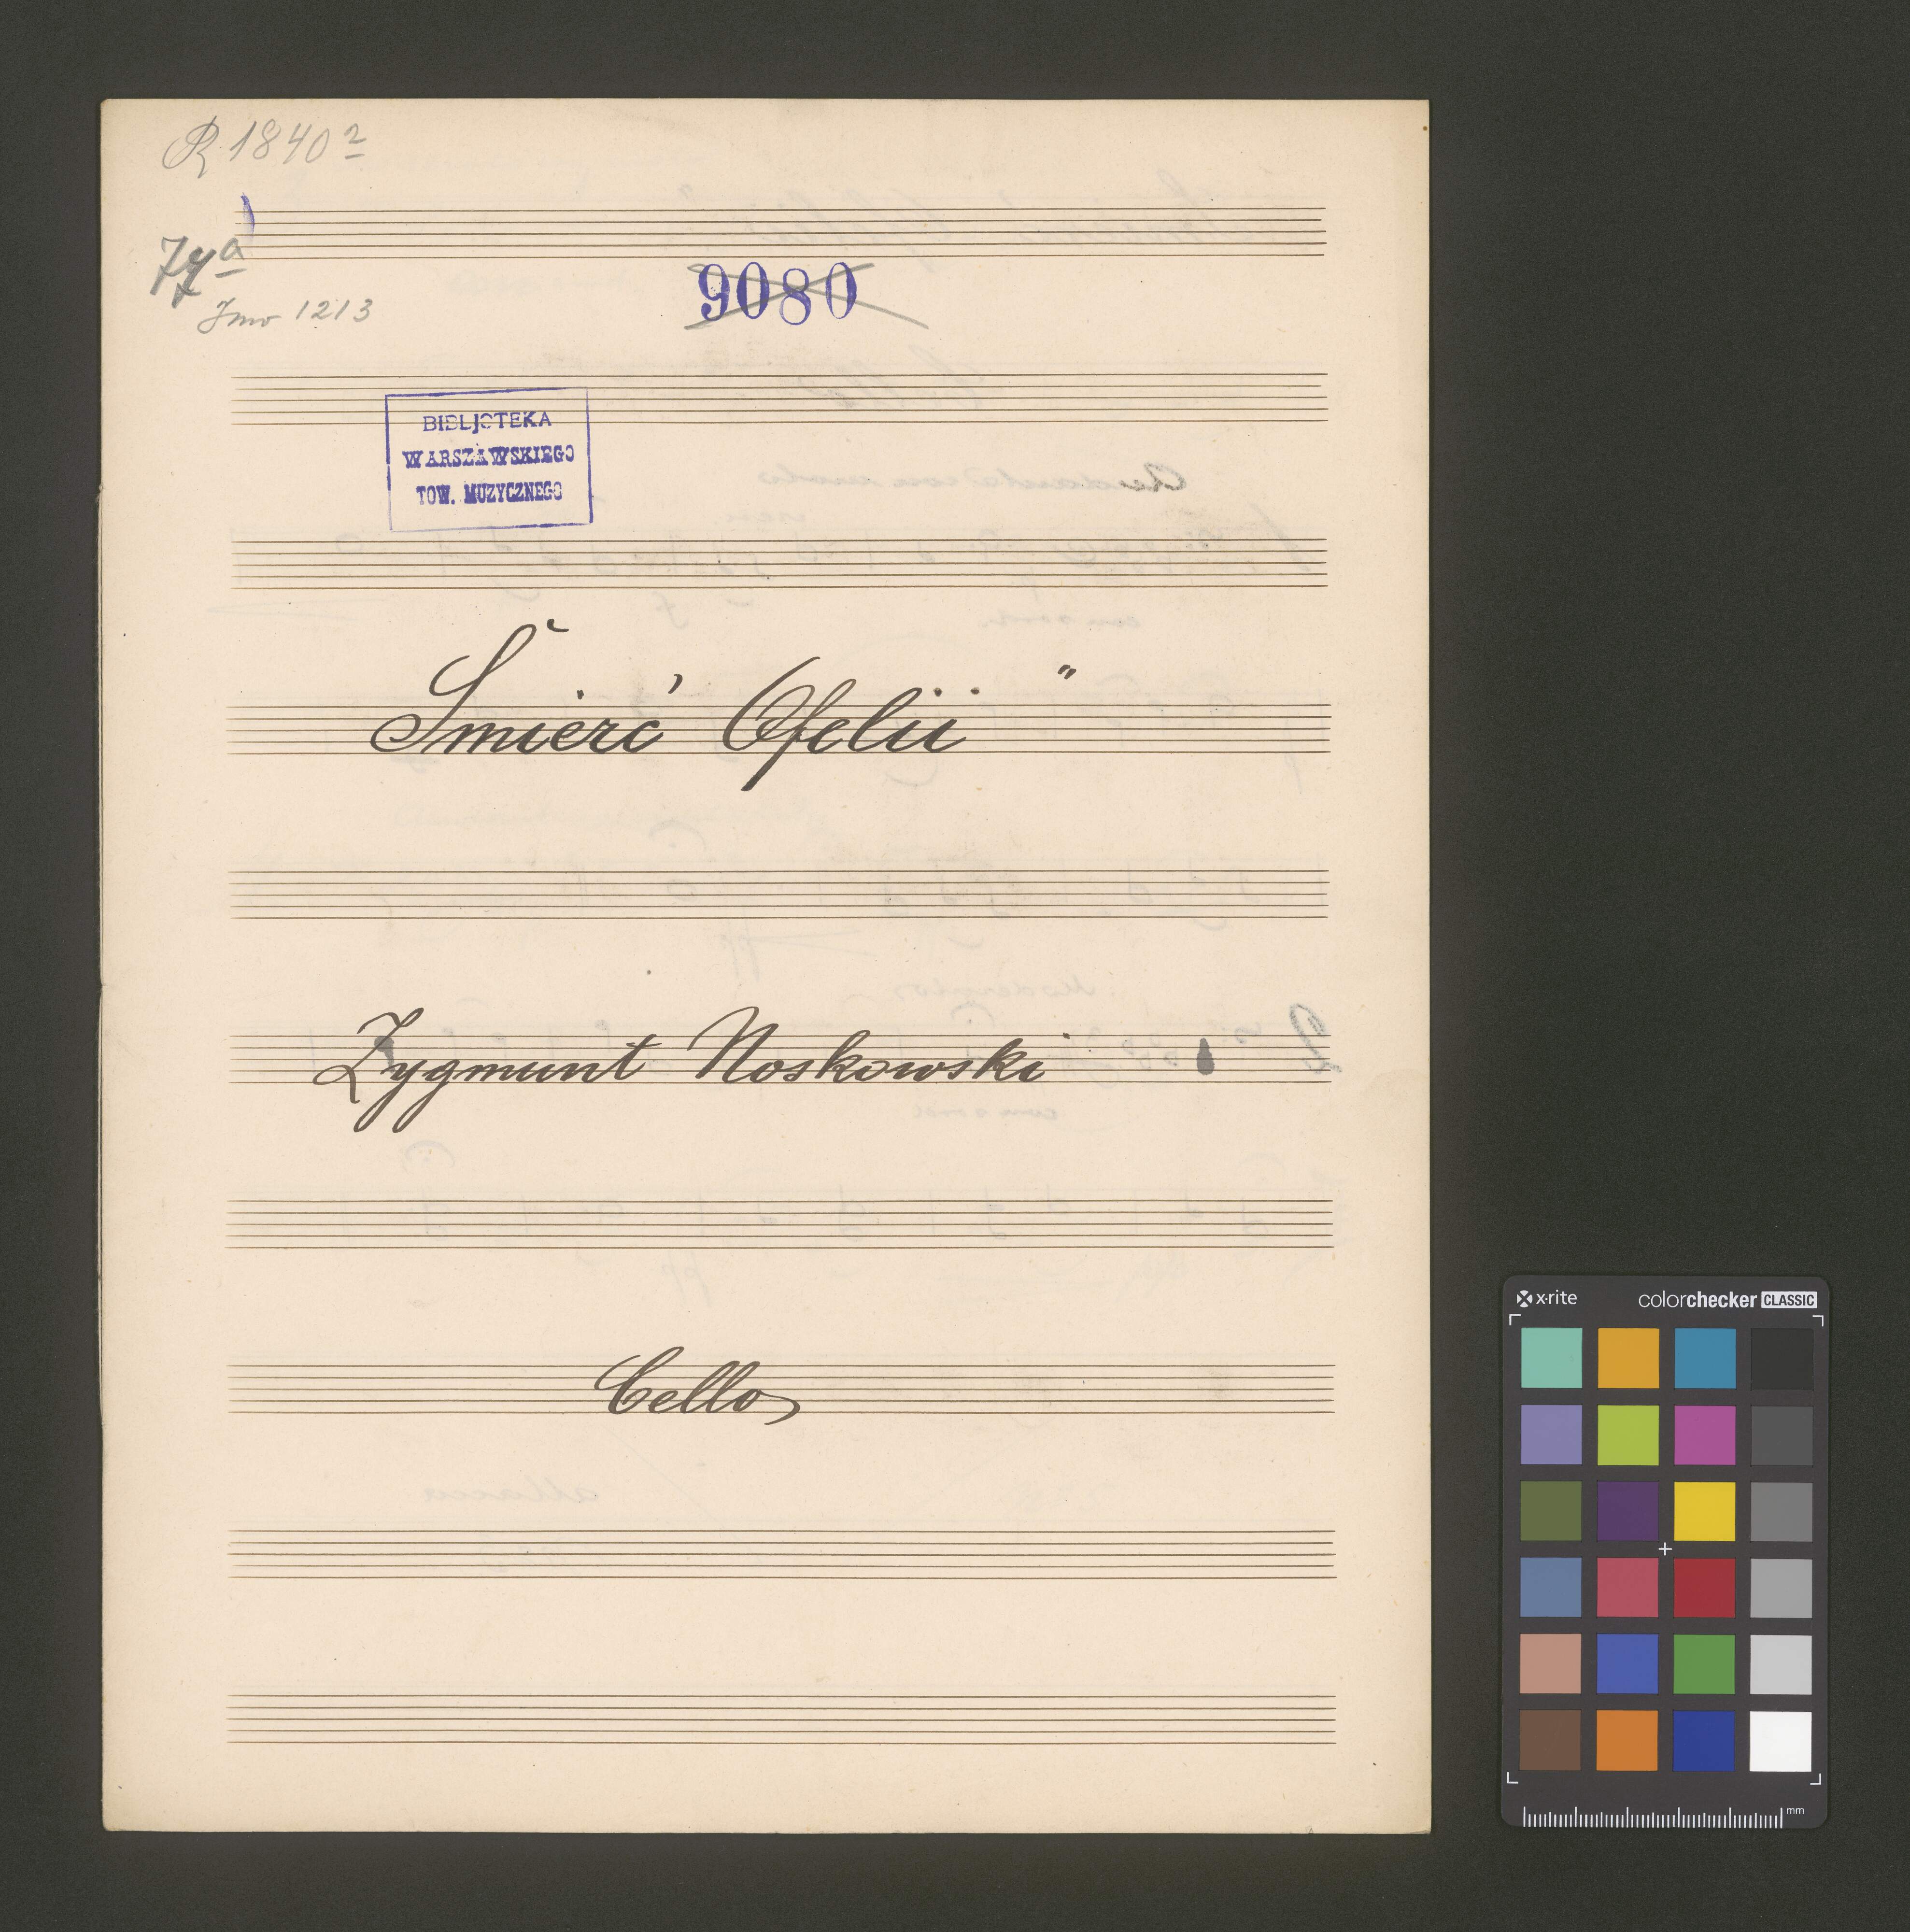 R 1840 2
77a
Inw 1213
9080
BIBLJOTEKA
WARSZAWSKIEGO
TOW. MUZYCZNEGO
Śmierć Ofelii"
Zygmunt Noskowski
Cello
x·rite colorchecker CLASSIC
mm